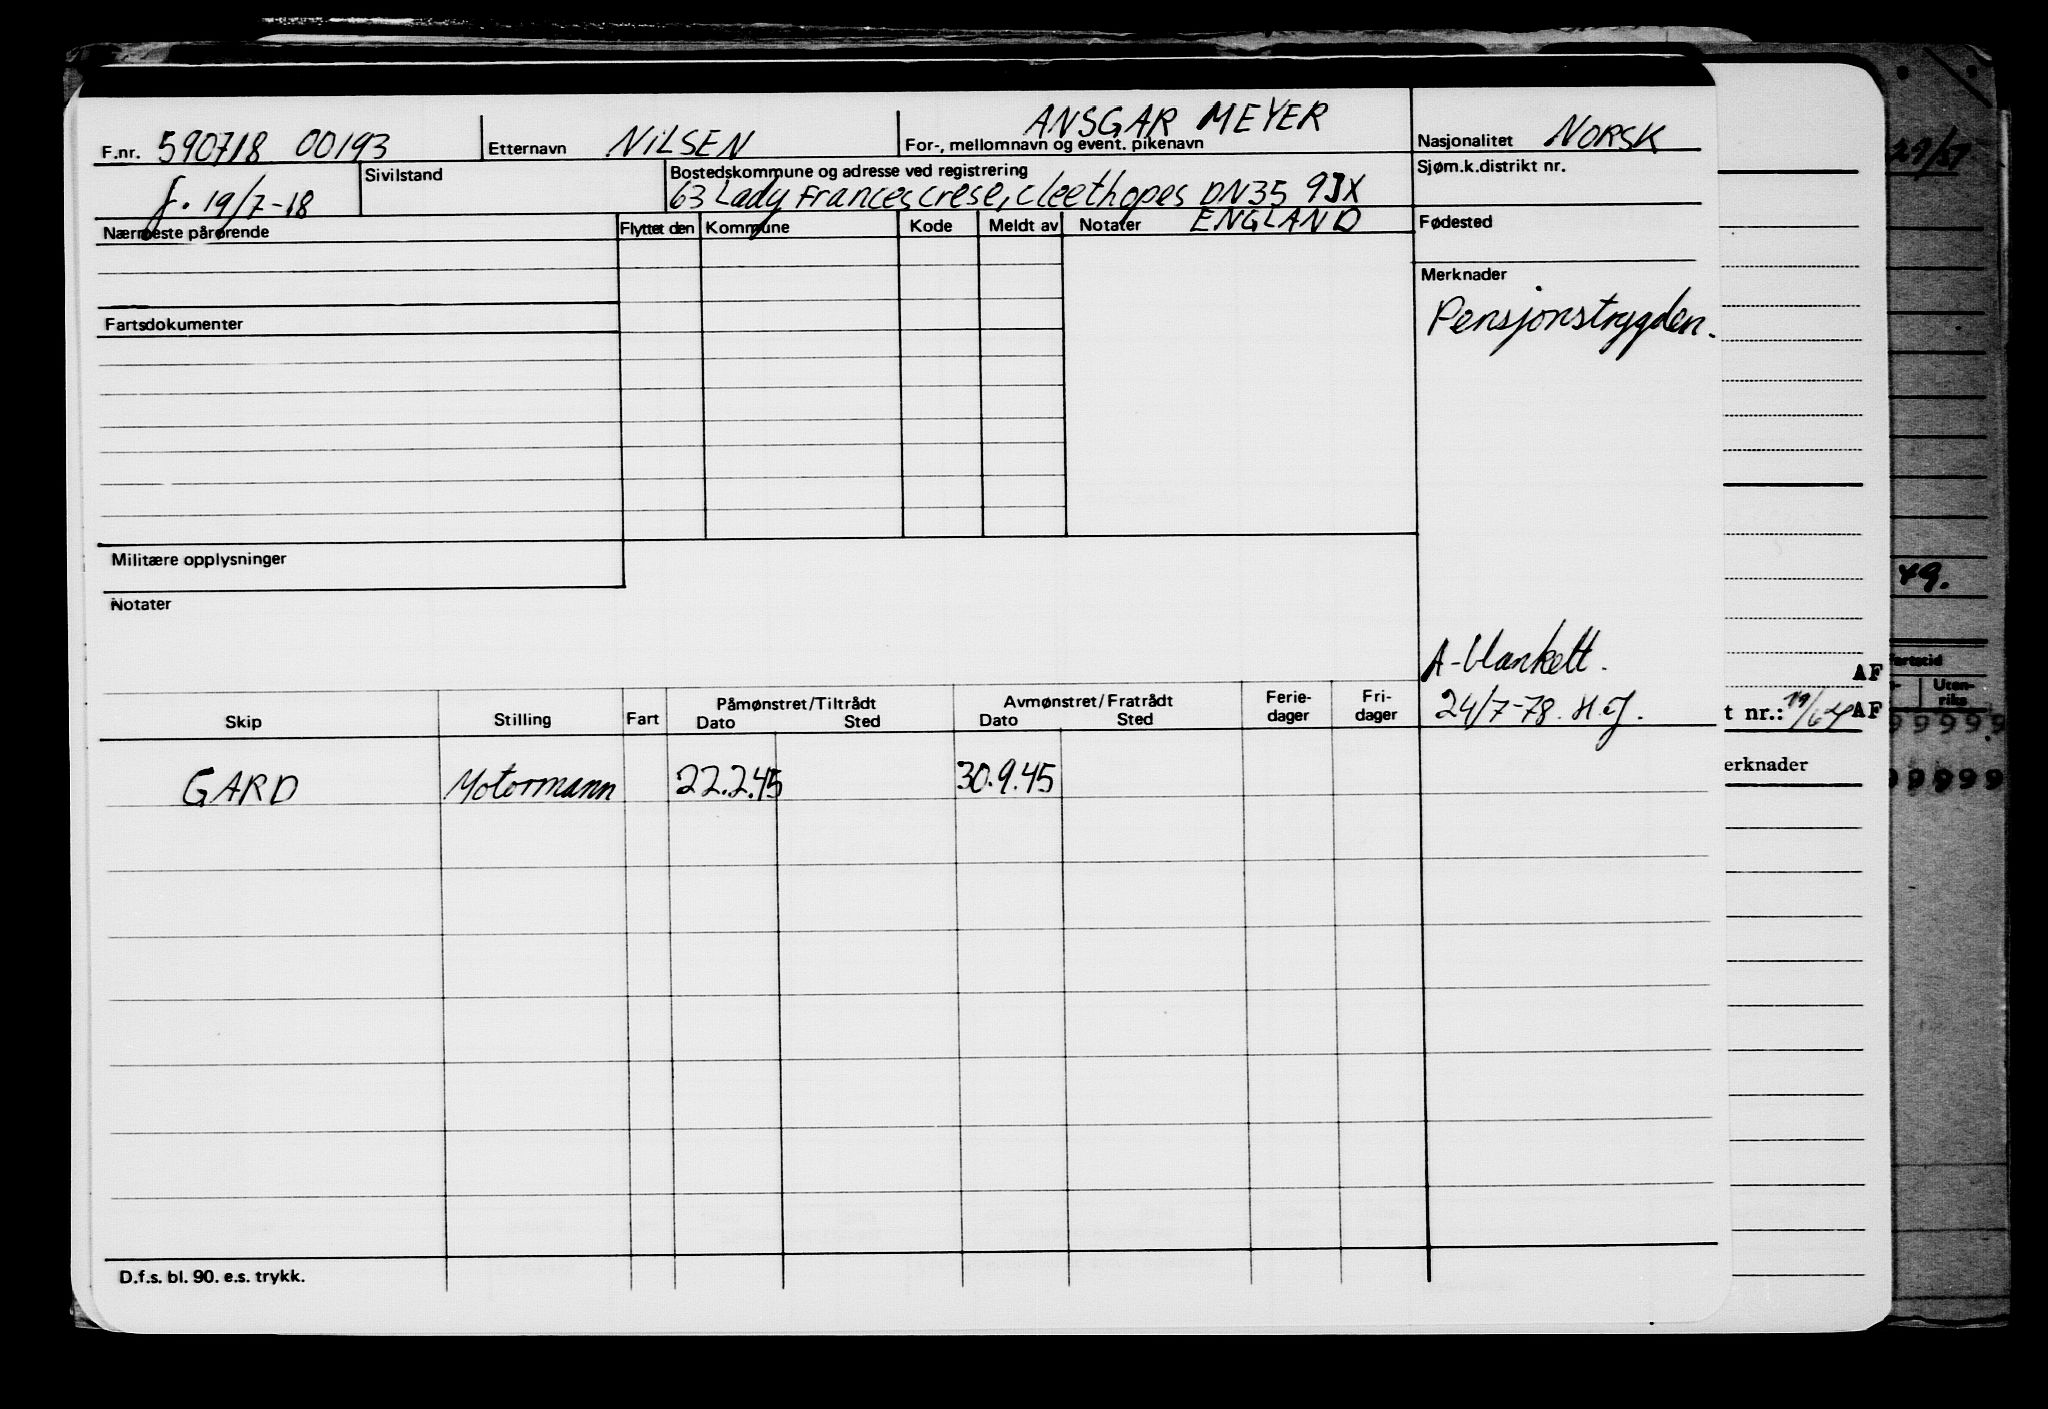 F.nr. 590718 00193 Etternavn NILSEN ANSGAR MEYER For-, mellomnavn og event. pikenavn Nasjonalitet NORSK
f. 19/7-18 Sivilstand Bostedskommune og adresse ved registrering Sjøm.k.distrikt nr.
63 Lady Frances Crese, Cleethopes DN35 9JX
ENGLAND
Nærmeste pårørende Flyttet den Kommune Kode Meldt av Notater Fødested
Merknader
Pensjonstrygden.
Fartsdokumenter
Militære opplysninger
Notater
A-blankett.
24/7-78. H.J.
Skip Stilling Fart Påmønstret/Tiltrådt Dato Sted Avmønstret/Fratrådt Dato Sted Ferie-dager Fri-dager
GARD Motormann 22.2.45 30.9.45
D.f.s. bl. 90. e.s. trykk.
AF
t nr.: AF
erknader
49.
Uten-
riks
99999
99999